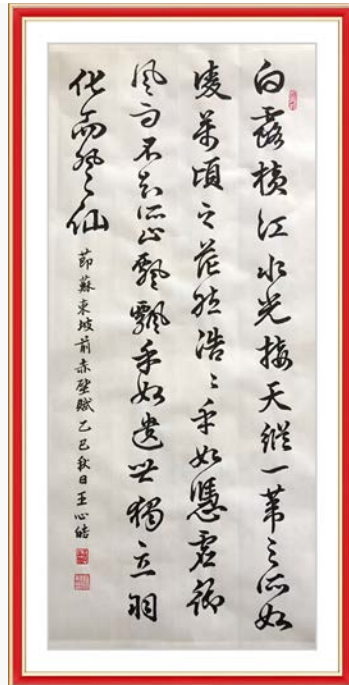 白露橫江水光接天縱一葦之所如
凌萬頃之茫然浩〻乎如憑虛御
風而不知所止飄飄乎如遺世獨立羽
化而登仙
節蘇東坡前赤壁賦乙巳秋日王心